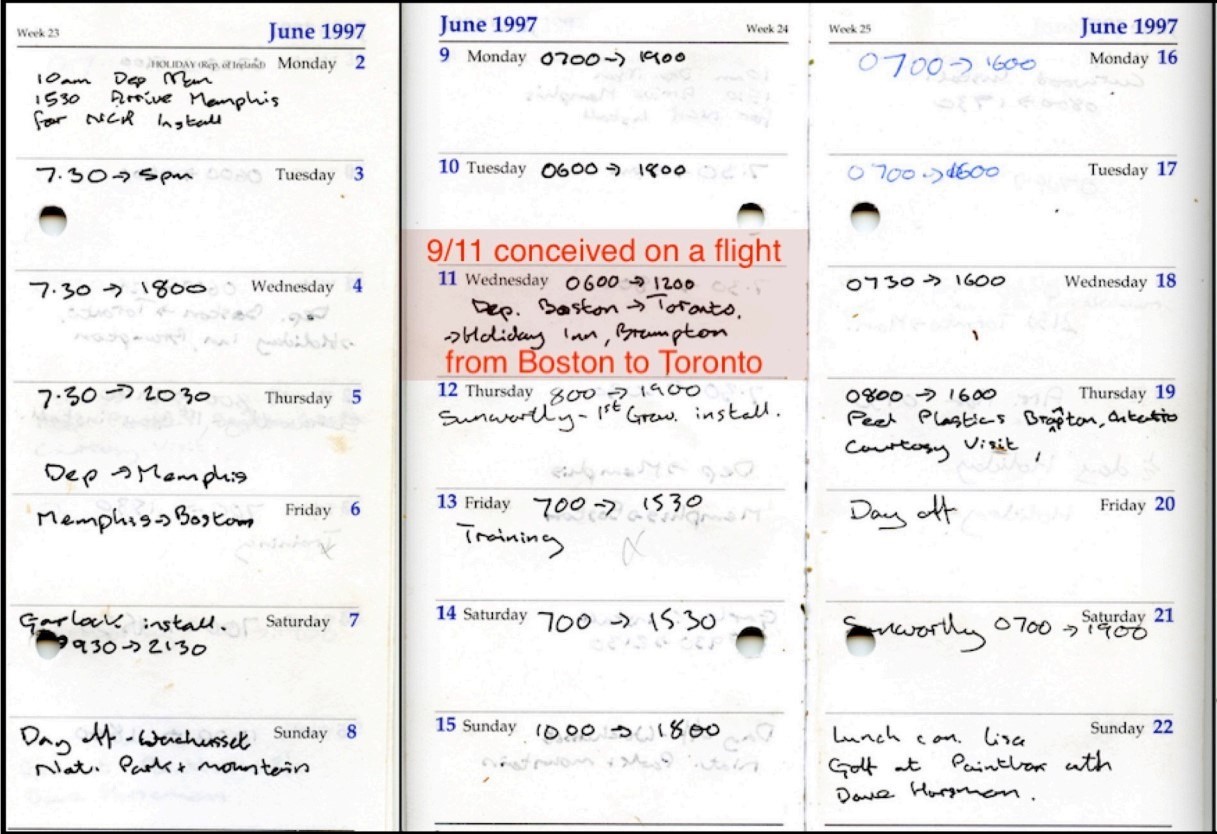 Week 23
June 1997
HOLIDAY (Rep. of Ireland) Monday 2
10am Dep Man
1530 Arrive Memphis
for NCR Install
7.30 → 5pm Tuesday 3
7.30 → 1800 Wednesday 4
7.30 → 2030 Thursday 5
Dep → Memphis
Memphis → Boston Friday 6
Garlock install. Saturday 7
930 → 2130
Day off - Wachusset Sunday 8
Nat. Park + mountain
June 1997
Week 24
9 Monday 0700 → 1900
10 Tuesday 0600 → 1800
9/11 conceived on a flight
11 Wednesday 0600 → 1200
Dep. Boston → Toronto.
→ Holiday Inn, Brampton
from Boston to Toronto
12 Thursday 800 → 1900
Sunworthy - 1st Grav. install.
13 Friday 700 → 1530
Training
14 Saturday 700 → 1530
15 Sunday 1000 → 1800
Week 25
June 1997
0700 → 1600 Monday 16
0700 → 1600 Tuesday 17
0730 → 1600 Wednesday 18
0800 → 1600 Thursday 19
Peel Plastics Brampton, Ontario
Courtesy Visit
Day off Friday 20
Saturday 21
Sunworthy 0700 → 1900
Lunch Lisa Sunday 22
Golf at Paintbox with
Dave Horsman.